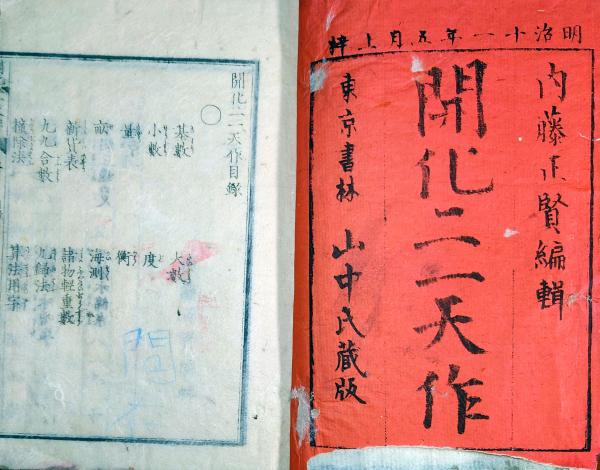 明治十一年五月上梓
内藤正賢編輯
開化二一天作
東京書林 山中氏蔵版
開化二一天作目録
〇
基數 大數
小數 度
量 衡
畝 海測
諸物軽重數
九九合數 九歸法
除法 算法用字